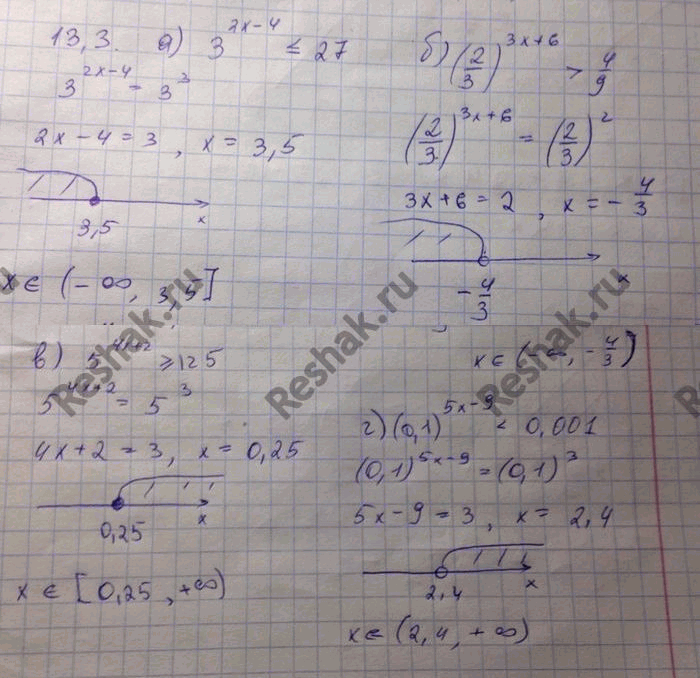 13,3. а) 3^(2x-4) ≤ 27
3^(2x-4) = 3^3
2x - 4 = 3, x = 3,5
3,5
x
x ∈ (-∞, 3,5]
б) (2/3)^(3x+6) > 4/9
(2/3)^(3x+6) = (2/3)^2
3x + 6 = 2, x = - 4/3
- 4/3
x
x ∈ (-∞, - 4/3)
в) 5^(4x+2) ≥ 125
5^(4x+2) = 5^3
4x + 2 = 3, x = 0,25
0,25
x
x ∈ [0,25, +∞)
г) (0,1)^(5x-9) < 0,001
(0,1)^(5x-9) = (0,1)^3
5x - 9 = 3, x = 2,4
2,4
x
x ∈ (2,4, +∞)
Reshak.ru
Reshak.ru
Reshak.ru